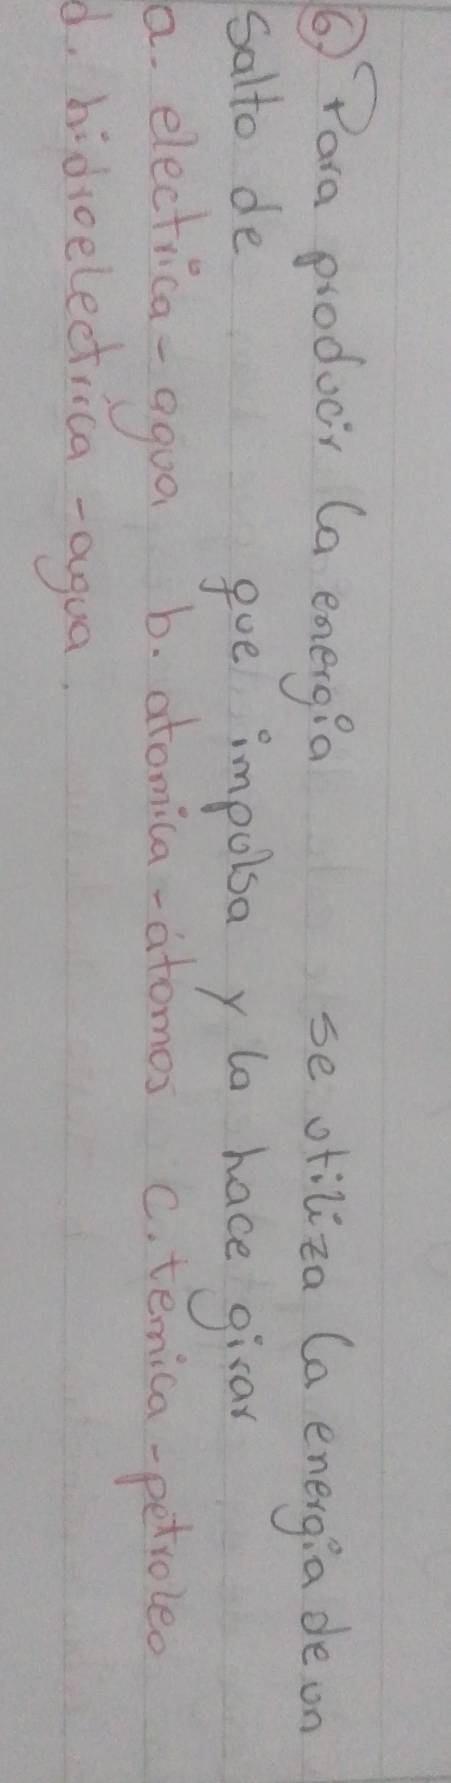 6. Para producir la energía se utiliza la energía de un
salto de que impulsa y la hace girar
a. electrica - agua b. atomica - átomos c. termica - petroleo
d. hidroelectrica - agua.